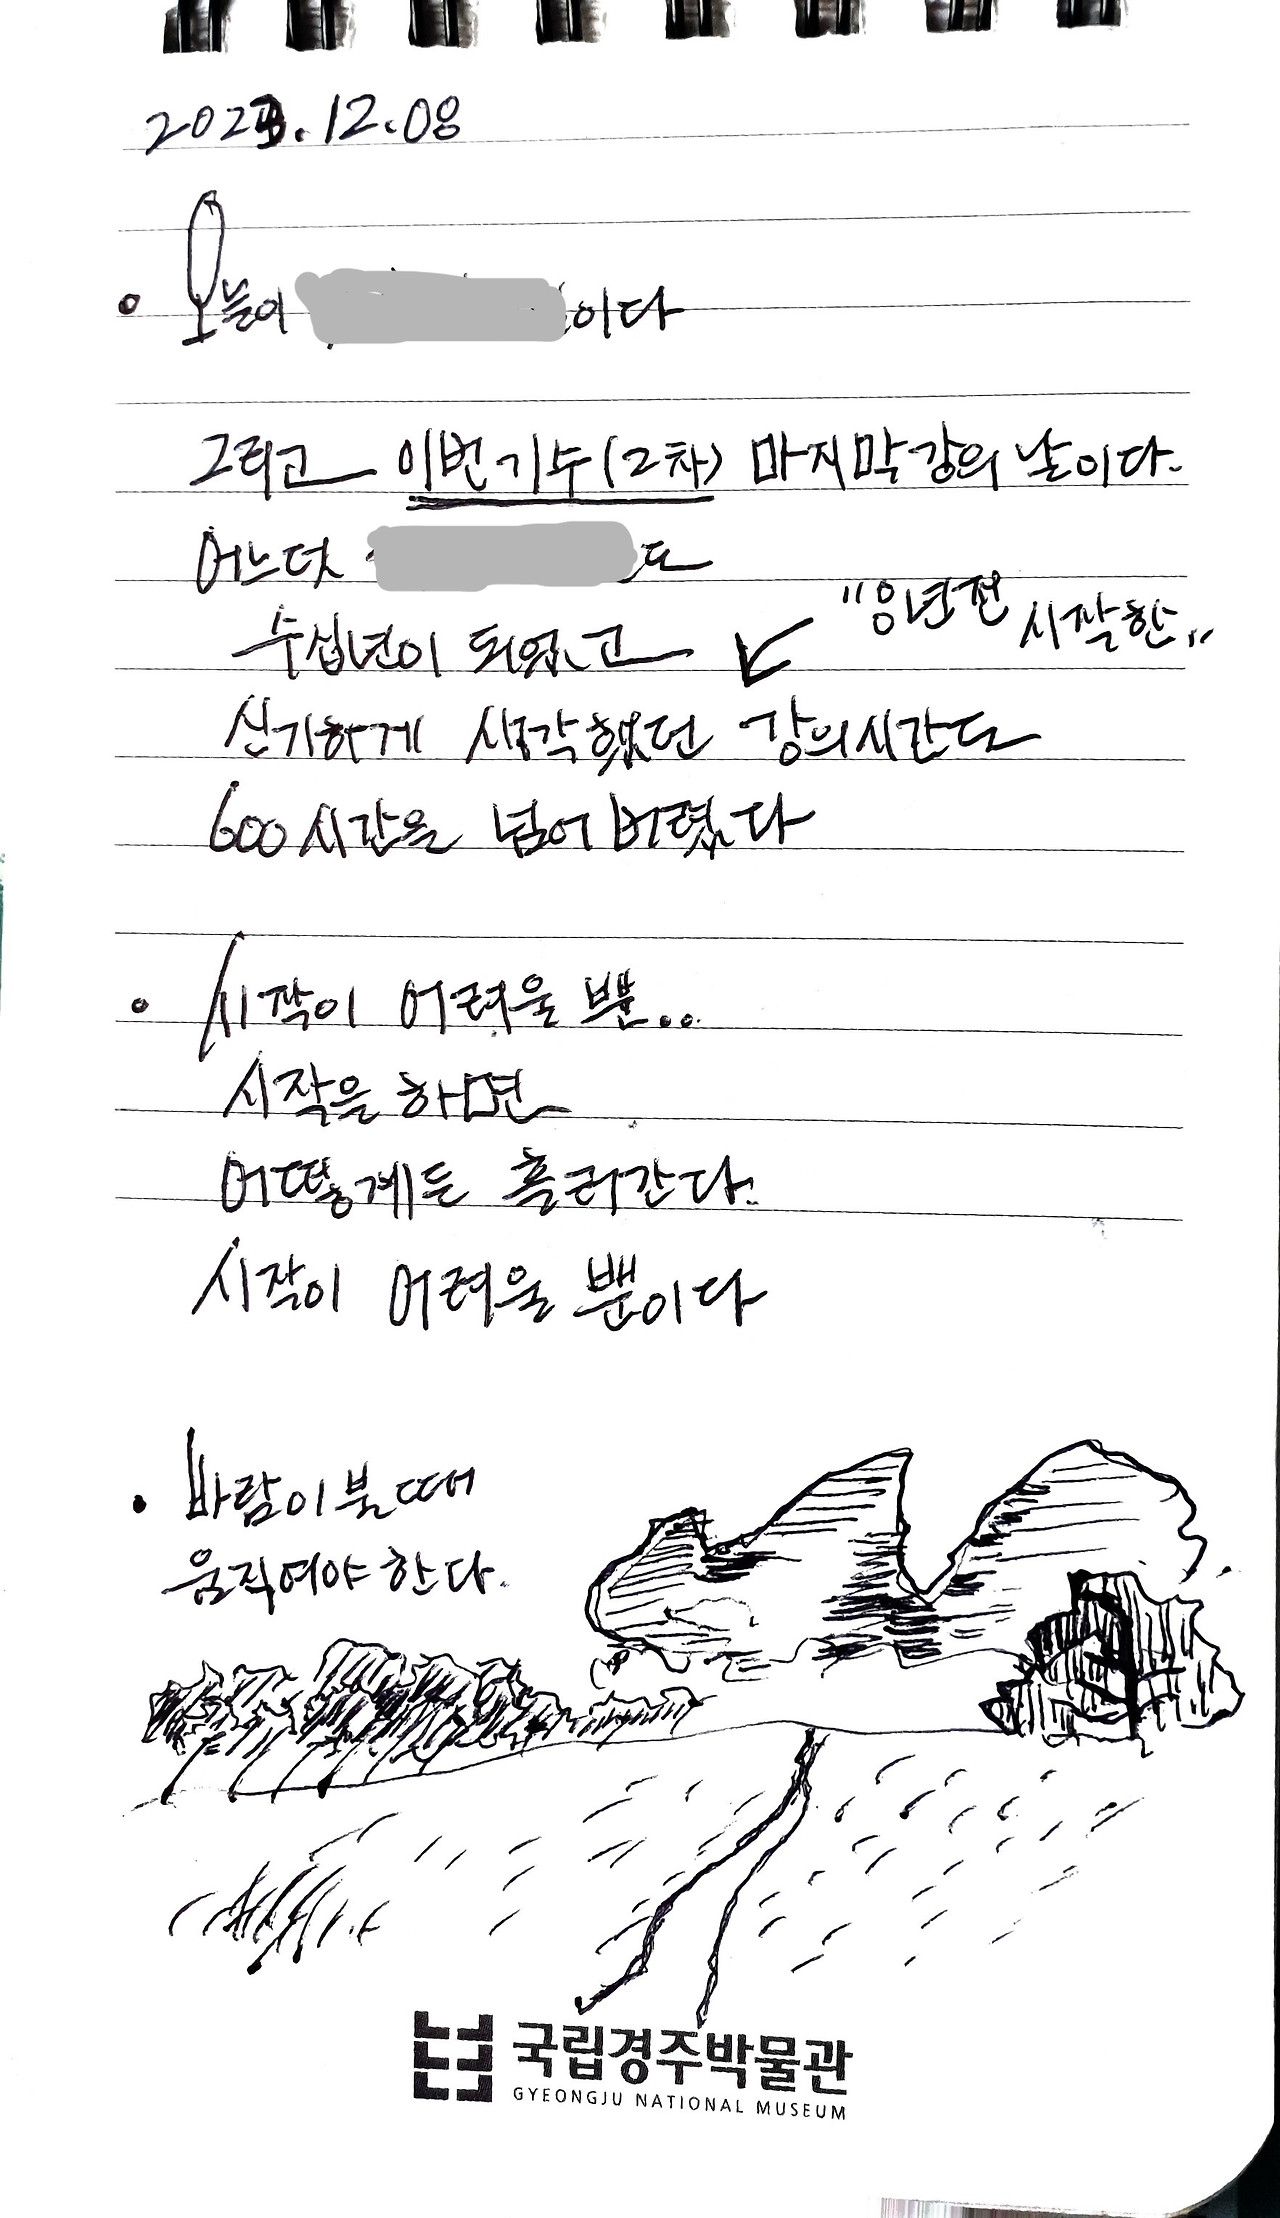 2023.12.08
오늘이 이다
그리고 이번기수(2차) 마지막강의 날이다.
어느덧 도
수십년이 되었고
"8년전 시작한"
신기하게 시작했던 강의시간도
600시간을 넘어버렸다
시작이 어려울 뿐..
시작을 하면
어떻게든 흘러간다.
시작이 어려울 뿐이다
바람이 불때
움직여야 한다.
국립경주박물관
GYEONGJU NATIONAL MUSEUM